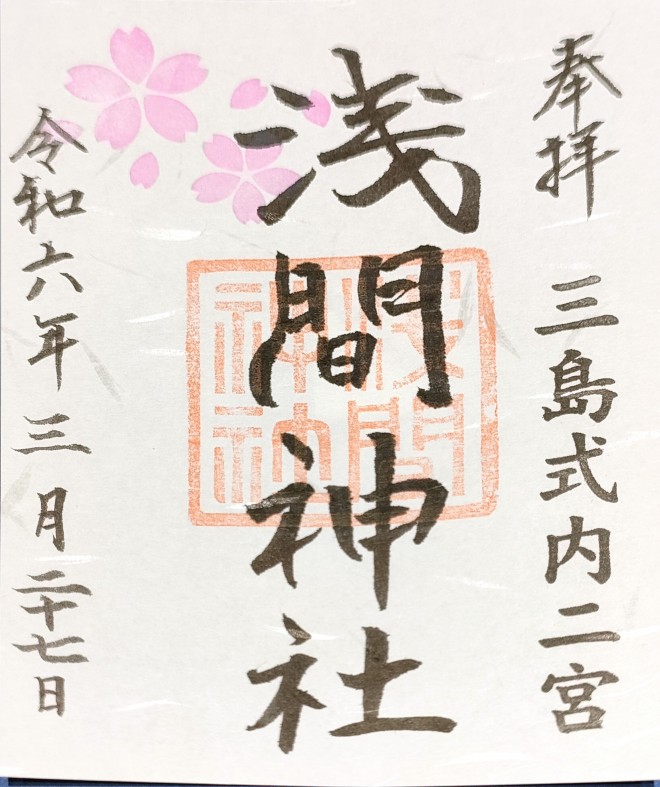 奉拝
三島式内二宮
浅間神社
浅間神社
令和六年三月二十七日